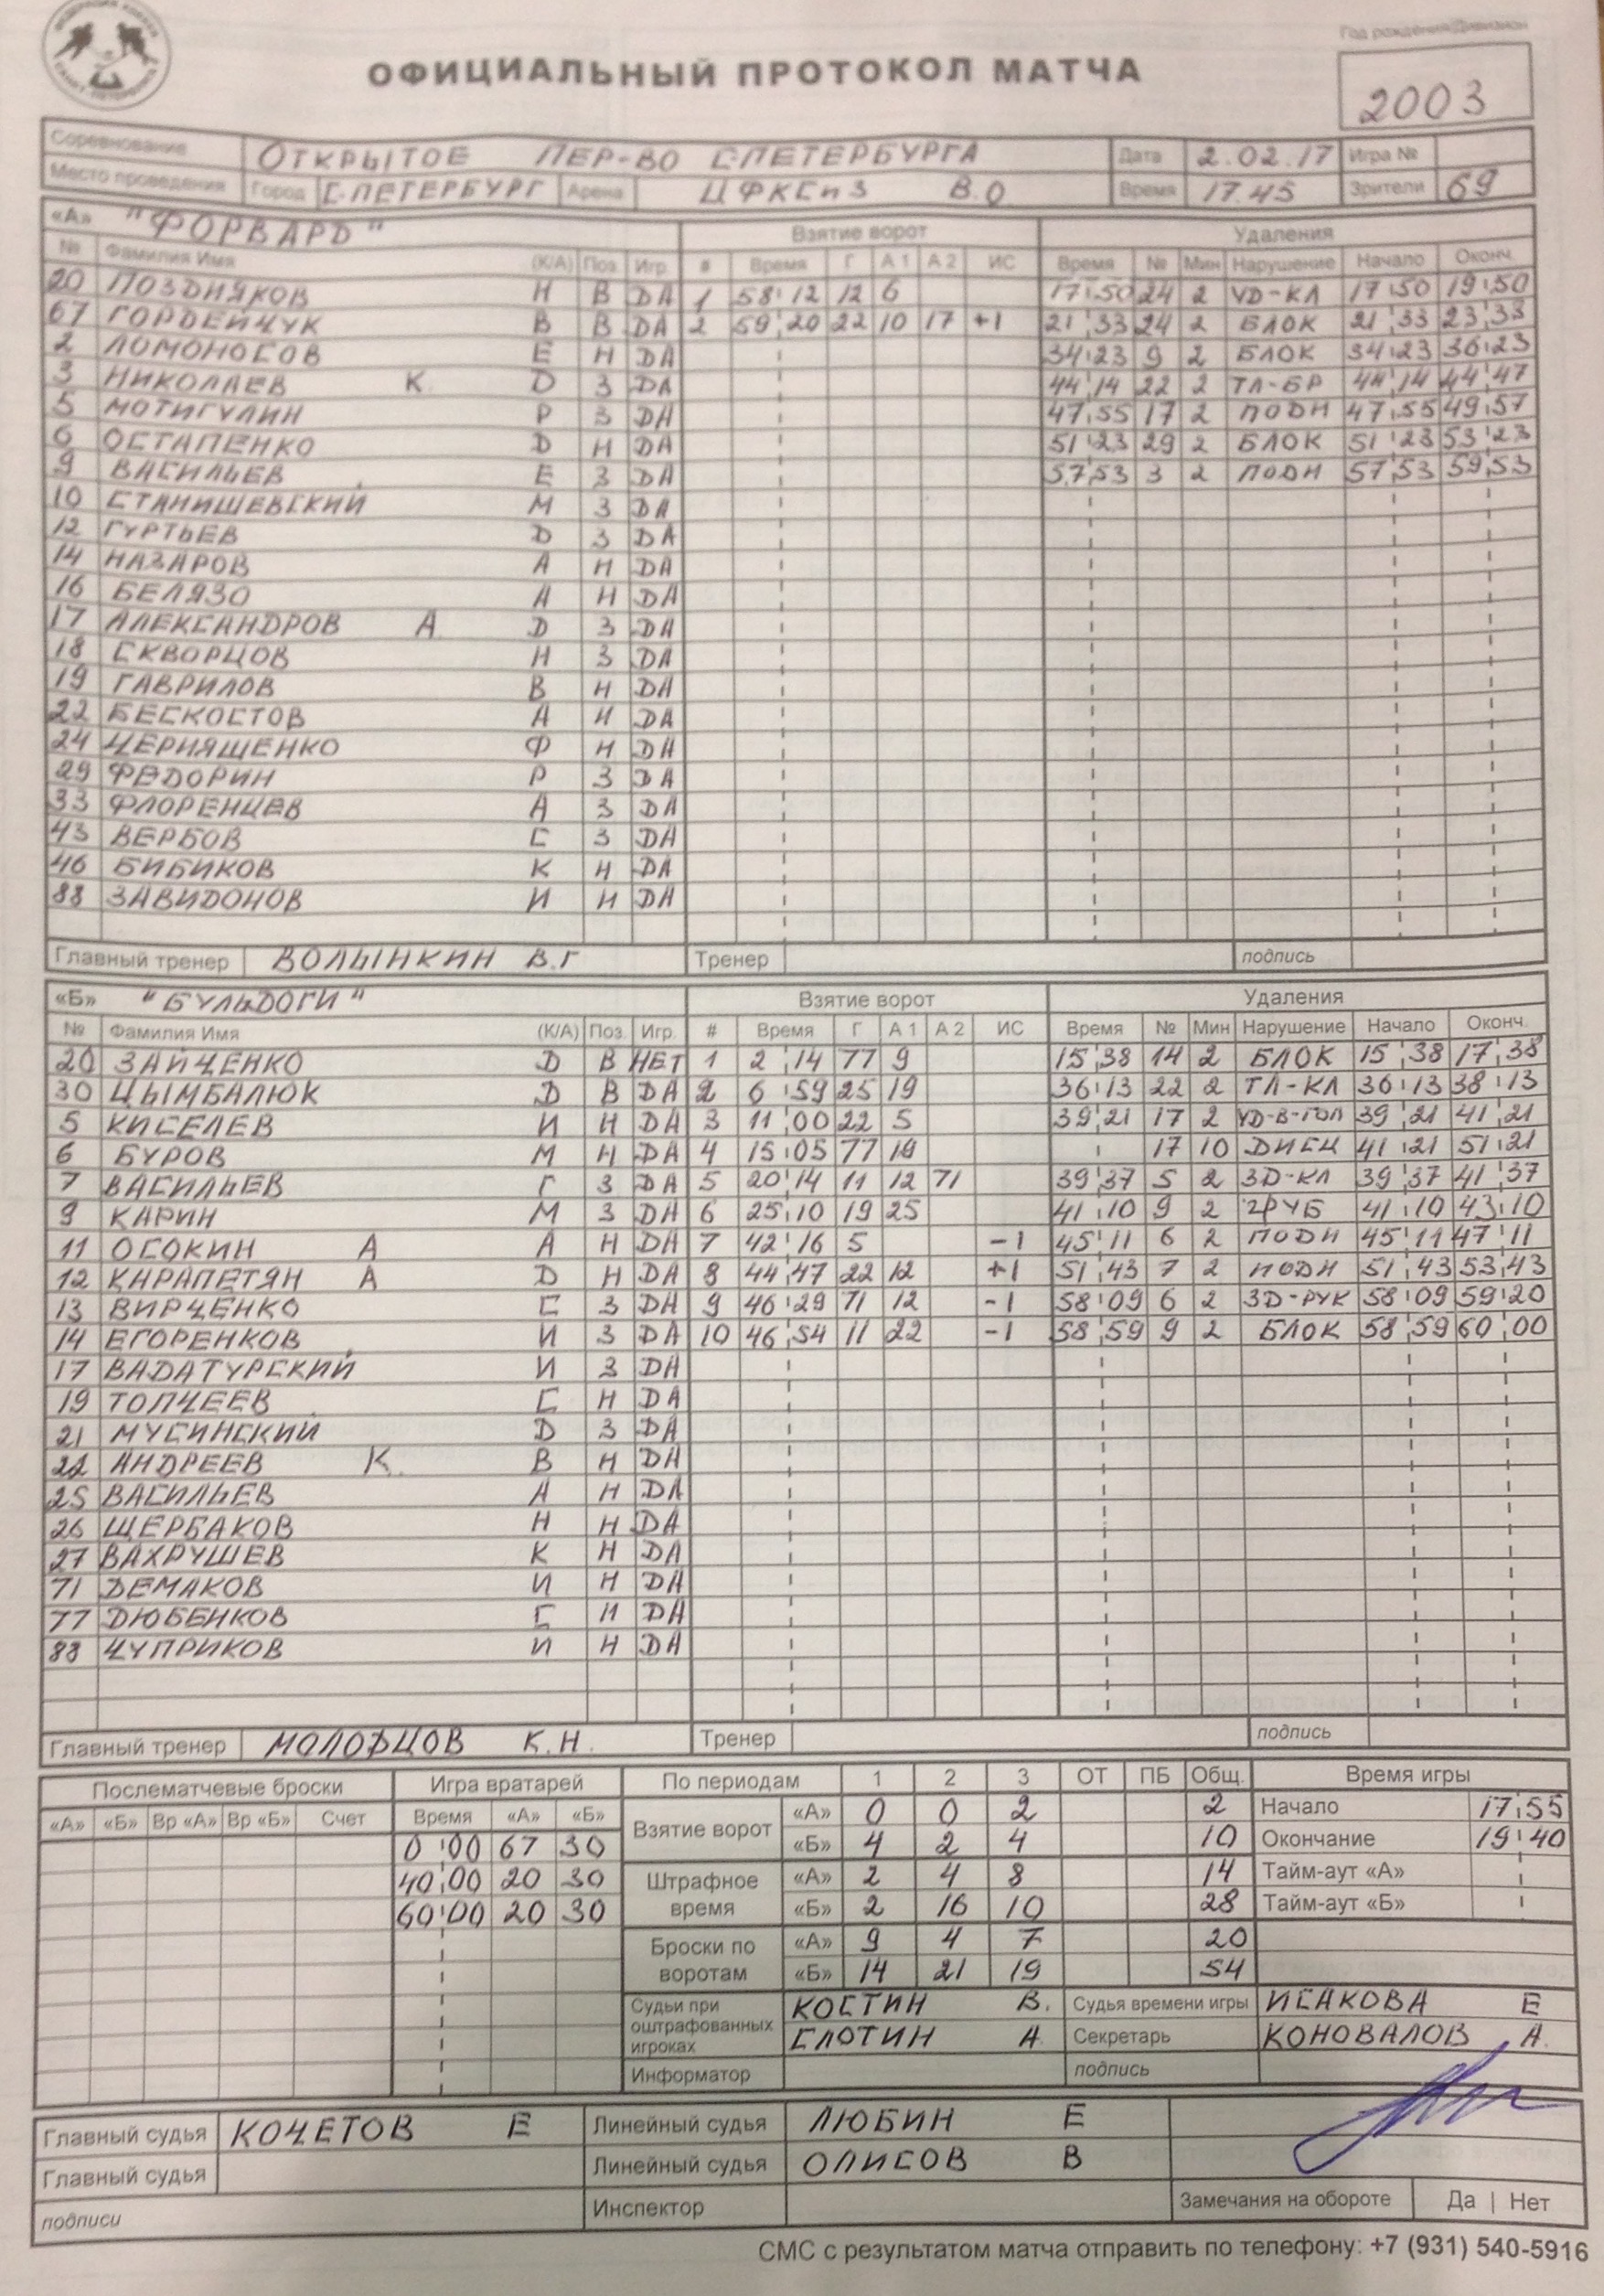 Год рождения/Дивизион
ОФИЦИАЛЬНЫЙ ПРОТОКОЛ МАТЧА
2003
Соревнование ОТКРЫТОЕ ПЕР-ВО С-ПЕТЕРБУРГА Дата 2.02.17 Игра №
Место проведения Город С-ПЕТЕРБУРГ Арена ЦФКСиЗ В.О. Время 17.45 Зрители 69
«А» "ФОРВАРД" Взятие ворот Удаления
№ Фамилия Имя (К/А) Поз. Игр. # Время Г А 1 А 2 ИС Время № Мин Нарушение Начало Оконч.
20 ПОЗДНЯКОВ Н В DA 1 58:12 12 6 17:50 24 2 УД-КЛ 17:50 19:50
67 ГОРДЕЙЧУК В В DA 2 59:20 22 10 17 +1 21:33 24 2 БЛОК 21:33 23:33
2 ЛОМОНОСОВ Е Н DA 34:23 9 2 БЛОК 34:23 36:23
3 НИКОЛАЕВ К. D З DA 44:14 22 2 ТЛ-БР 44:14 44:47
5 МОТИГУЛИН Р З DA 47:55 17 2 ПОДН 47:55 49:57
6 ОСТАПЕНКО D Н DA 51:23 29 2 БЛОК 51:23 53:23
9 ВАСИЛЬЕВ Е З DA 57:53 3 2 ПОДН 57:53 59:53
10 СТАНИШЕВСКИЙ М З DA
12 ГУРТЬЕВ D З DA
14 НАЗАРОВ А Н DA
16 БЕЛЯЗО А Н DA
17 АЛЕКСАНДРОВ А D З DA
18 СКВОРЦОВ Н З DA
19 ГАВРИЛОВ В Н DA
22 БЕСКОСТОВ А Н DA
24 ЧЕРНЯЩЕНКО Ф Н DA
29 ФЕДОРИН Р З DA
33 ФЛОРЕНЦЕВ А З DA
43 ВЕРБОВ С З DA
46 БИБИКОВ К Н DA
88 ЗАВИДОНОВ И Н DA
Главный тренер ВОЛЫНКИН В.Г Тренер подпись
«Б» "БУЛЬДОГИ" Взятие ворот Удаления
№ Фамилия Имя (К/А) Поз. Игр. # Время Г А 1 А 2 ИС Время № Мин Нарушение Начало Оконч.
20 ЗАЙЧЕНКО D В НЕТ 1 2:14 77 9 15:38 14 2 БЛОК 15:38 17:38
30 ЦЫМБАЛЮК D В DA 2 6:59 25 19 36:13 22 2 ТЛ-КЛ 36:13 38:13
5 КИСЕЛЕВ И Н DA 3 11:00 22 5 39:21 17 2 УД-В-ГОЛ 39:21 41:21
6 БУРОВ М Н DA 4 15:05 77 19 17 10 ДИСЦ 41:21 51:21
7 ВАСИЛЬЕВ Г З DA 5 20:14 11 12 71 39:37 5 2 ЗД-КЛ 39:37 41:37
9 КАРИН М З DA 6 25:10 19 25 41:10 9 2 ГРУБ 41:10 43:10
11 ОСОКИН А А Н DA 7 42:16 5 -1 45:11 6 2 ПОДН 45:11 47:11
12 КАРАПЕТЯН А D Н DA 8 44:47 22 12 +1 51:43 7 2 ПОДН 51:43 53:43
13 ВИРЧЕНКО С З DA 9 46:29 71 12 -1 58:09 6 2 ЗД-РУК 58:09 59:20
14 ЕГОРЕНКОВ И З DA 10 46:54 11 22 -1 58:59 9 2 БЛОК 58:59 60:00
17 ВАДАТУРСКИЙ И З DA
19 ТОПЧЕЕВ С Н DA
21 МУСИНСКИЙ D З DA
22 АНДРЕЕВ К. В Н DA
25 ВАСИЛЬЕВ А Н DA
26 ЩЕРБАКОВ Н Н DA
27 ВАХРУШЕВ К Н DA
71 DЕМАКОВ И Н DA
77 DЮБЕНКОВ С Н DA
88 ЧУПРИКОВ И Н DA
Главный тренер МОЛОДЦОВ К.Н. Тренер подпись
Послематчевые броски Игра вратарей По периодам 1 2 3 ОТ ПБ Общ. Время игры
«А» «Б» Вр «А» Вр «Б» Счет Время «А» «Б» Взятие ворот «А» 0 0 2 2 Начало 17:55
0:00 67 30 «Б» 4 2 4 10 Окончание 19:40
40:00 20 30 Штрафное время «А» 2 4 8 14 Тайм-аут «А»
60:00 20 30 «Б» 2 16 10 28 Тайм-аут «Б»
Броски по воротам «А» 9 4 7 20
«Б» 14 21 19 54
Судьи при оштрафованных игроках КОСТИН В. Судья времени игры ИСАКОВА Е
СЛОТИН А. Секретарь КОНОВАЛОВ А.
Информатор подпись
Главный судья КОЧЕТОВ Е Линейный судья ЛЮБИН Е
Главный судья Линейный судья ОЛИСОВ В
подписи Инспектор Замечания на обороте Да | Нет
СМС с результатом матча отправить по телефону: +7 (931) 540-5916